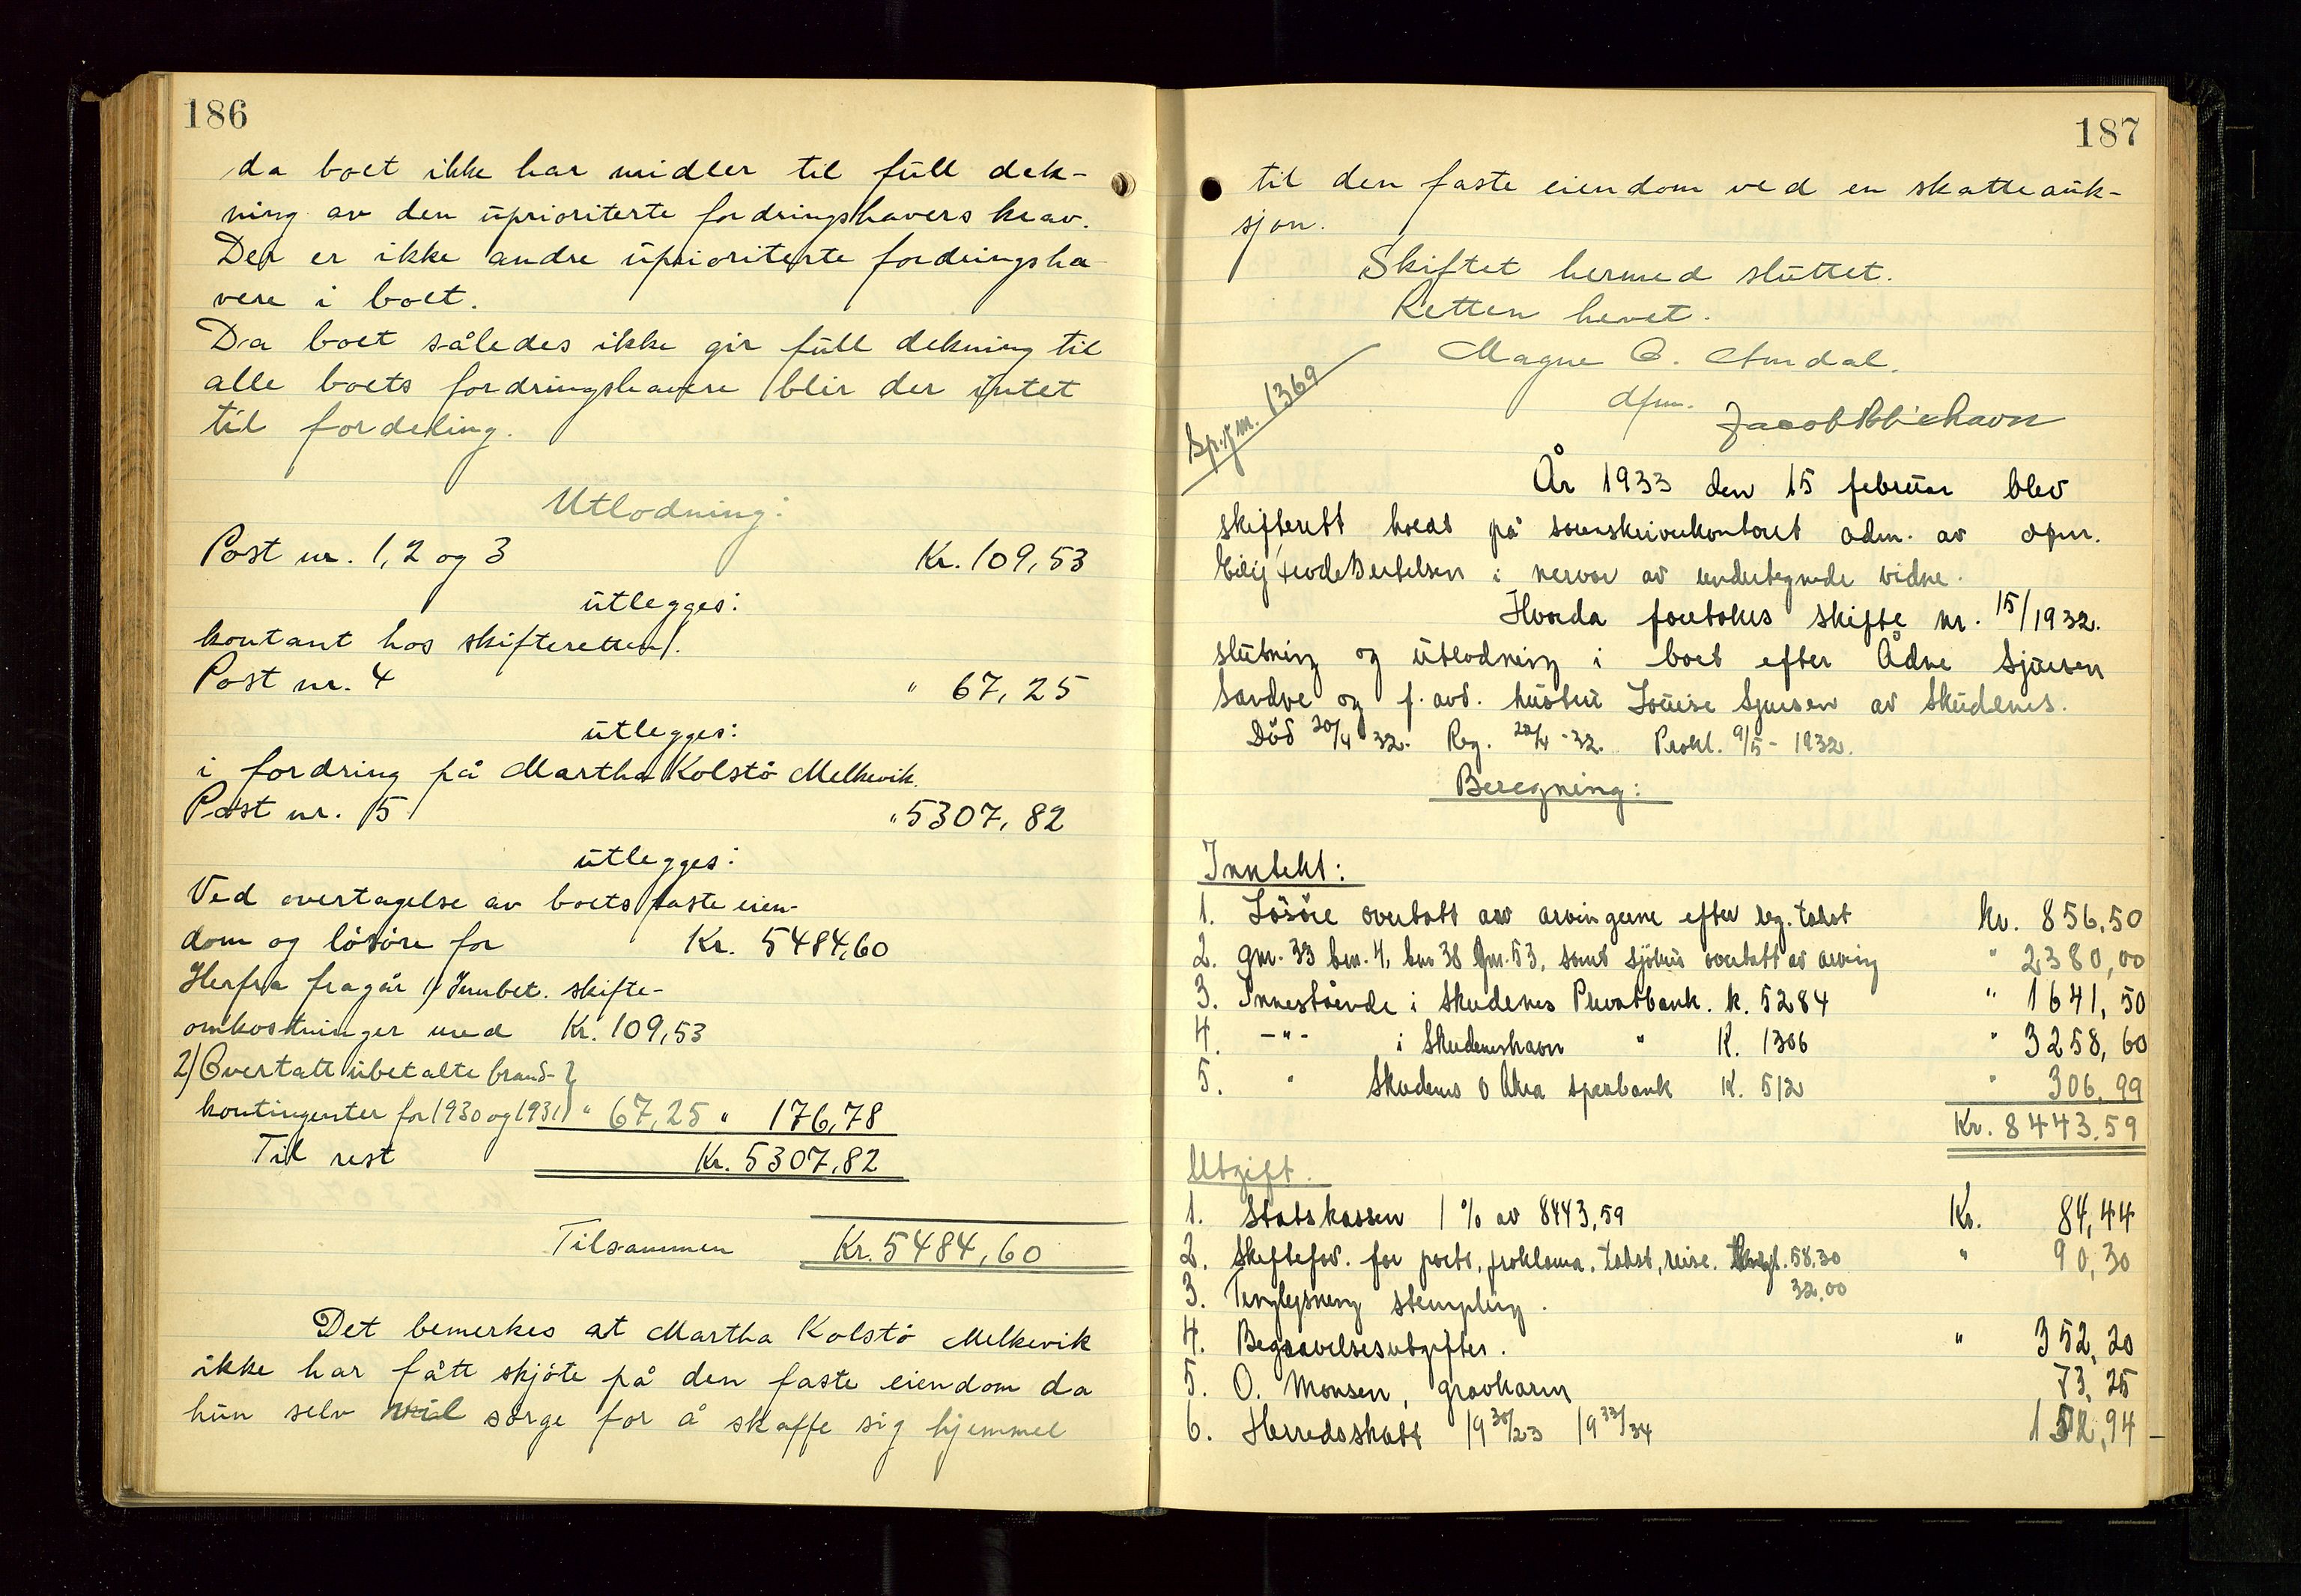 186
da boet ikke har midler til full dek-
ning av den uprioriterte fordringshavers krav.
Der er ikke andre uprioriterte fordringsha
vere i boet.
Da boet således ikke gir full dekning til
alle boets fordringshavere blir der intet
til fordeling.
Utlodning:
Post nr. 1, 2 og 3 Kr. 109,53
utlegges:
kontant hos skifteretten.
Post nr. 4 " 67,25
utlegges:
i fordring på Martha Kolstö Melkevik.
Post nr. 5 " 5307,82
utlegges:
Ved overtagelse av boets faste eien-
dom og lösöre for Kr. 5484,60
Herfra fragår 1) Innbet. skifte-
omkostninger med Kr. 109,53
2) Overtatt ubetalte brand-
kontingenter for 1930 og 1931) " 67,25 " 176,78
Til rest Kr. 5307,82
Tilsammen Kr. 5484,60
Det bemerkes at Martha Kolstö Melkevik
ikke har fått skjöte på den faste eiendom da
hun selv vil sörge for å skaffe sig hjemmel
187
til den faste eiendom ved en skatteauk-
sjon.
Skiftet hermed sluttet.
Retten hevet.
Magne O.
dfm.
1369
År 1933 den 15 februar blev
skifterett holdt på sorenskriverkontoret adm. av dfm.
Bertelsen i nervær av undertegnede vidne.
Hvorda foretokes skifte nr. 15/1932.
slutning og utlodning i boet efter Ådne Sjursen
Sandve og f. avd. hustru Louise Sjursen av Skudenes.
Död 20/4 32. Reg. 22/4 -32. Prokl. 9/5 - 1932.
Beregning:
Inntekt:
1. Lösöre overtatt av arvingerne efter reg. takst kr. 856,50
2. gnr. 33 bnr. 4, bnr 38 gnr. 53, samt sjöhus overtatt av arving " 2380,00
3. Innestående i Skudenes Privatbank. k. 5284 " 1641,50
4. -"- i Skudeneshavn " K. 1306 " 3258,60
5. " Skudenes o Akra sparbank K. 512 " 306,99
Kr. 8443.59
Utgift.
1. Statskassen 1 % av 8443,59 Kr. 84,44
2. Skiftefov. for porto, proklama, takst, reise. 58,30 " 90,30
3. Tinglysning stempling. 32,00
4. Begravelsesutgifter. " 352,20
5. O. Monsen, gravkarm 73,25
6. Herredsskatt 19 33/34